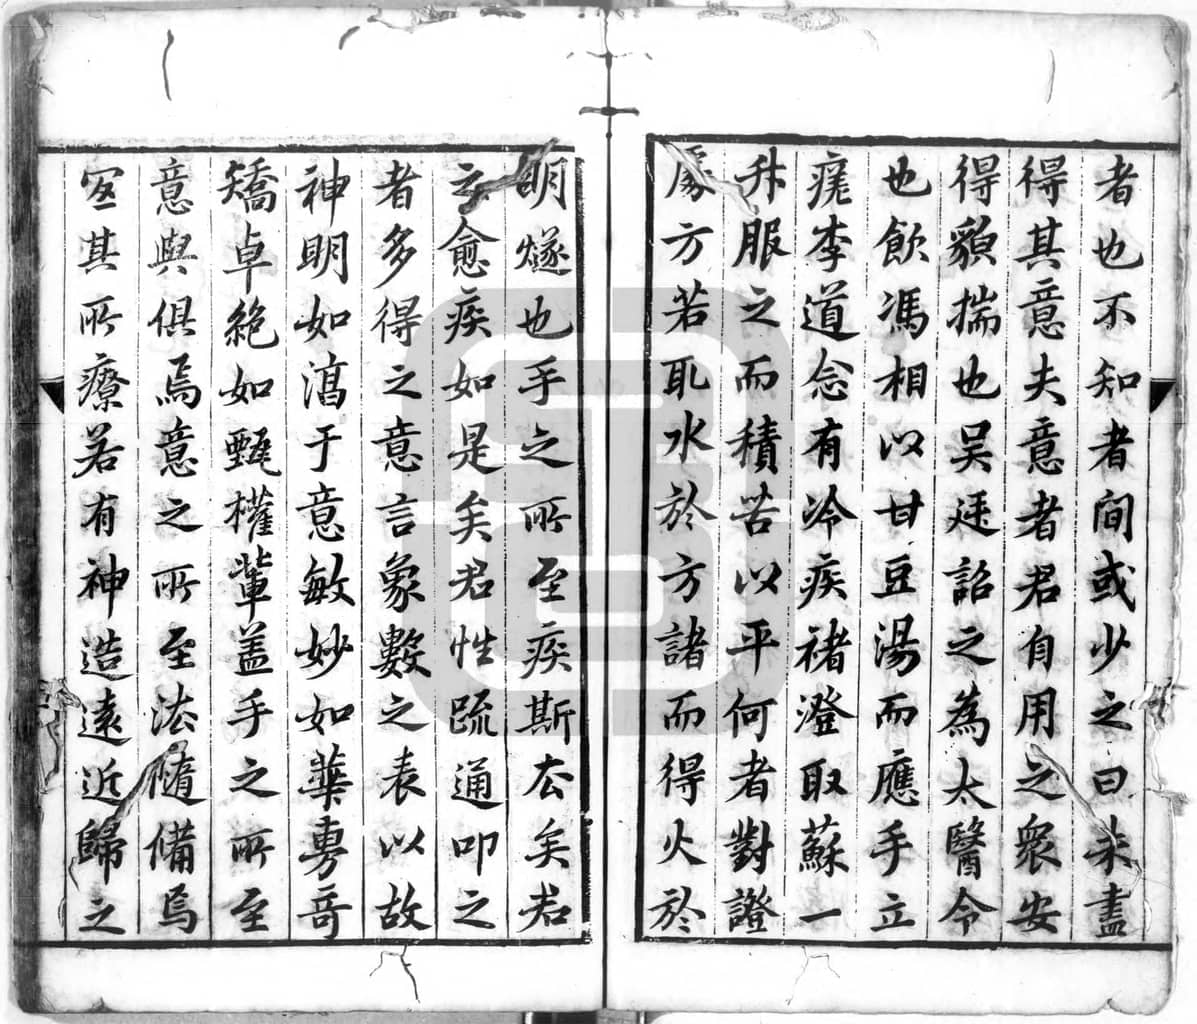 者也不知者间或少之曰未盡
得其意夫意者君自用之衆安
得貌揣也吴廷詔之為太醫令
也飲馮相以甘豆湯而應手立
痊李道念有冷疾褚澄取蘇一
升服之而積苦以平何者對證
處方若取水於方諸而得火於
明燧也手之所至疾斯去矣君
之愈疾如是矣君性疏通叩之
者多得之意言象數之表以故
神明如滀于意敏妙如華旉哥
矯卓絕如甄權輩盖手之所至
意與俱焉意之所至法隨備焉
宜其所療若有神造遠近歸之